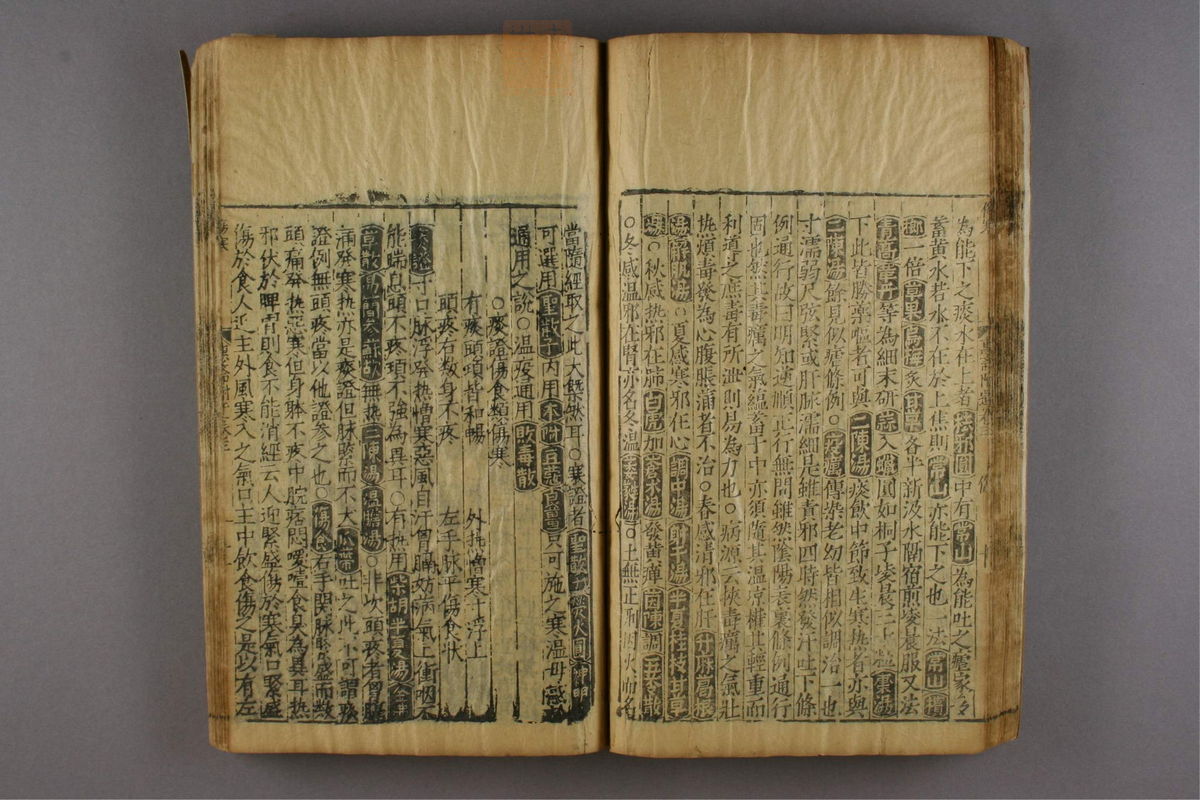 為能下之痰水在上者桃柳圓中有常山為能吐之瘧家多
蓄黃水若水不在於上焦則常山亦能下之也一法常山檳
榔一倍草果烏梅炙甘草各半新汲水隔宿煎凌晨服又法
青蒿黃丹等為細末研蒜入蠟圓如桐子凌晨三十粒棗湯
下此皆勝藥嘔者可與二陳湯痰飲中節致生寒熱者亦與
二陳湯餘見似瘧條例○疫癘傳染老幼皆相似調治一也
寸濡弱尺弦緊或肝脉濡細是維黃邪四時然發汗吐下條
例通行故曰明知逆順正行無問雖然陰陽表裏條例通行
固也然其毒癘之氣蘊畜于中亦須隨其温涼權其輕重而
利導之庶毒有所泄則易為力也○病源云挾毒癘之氣壯
热煩毒發為心腹脹滿者不治○春感清邪在肝升麻葛根
湯解肌湯○夏感寒邪在心調中湯射干湯半夏桂枝甘草
湯○秋感热邪在肺白虎加蒼术湯發黃癉茵陳調五苓散
○冬感温邪在腎亦名冬温葳蕤湯○土無正
當隨經取之此大槩然耳○寒證者聖散子燃火圓神明
可選用聖散子內用木附豆蔻良薑只可施之寒温毋惑
通用之説○温疫通用敗毒散
○痰證傷食類傷寒
有痰頭項皆和暢 外热憎寒寸浮上
頭疼右数身不疼 左手脉平傷食状
痰證寸口脉浮發热憎寒惡風自汗胷膈妨病氣上衝咽不
能喘息頭不疼項不強為異耳○有热用柴胡半夏湯金井
草散易簡参蘇飲無热二陳湯温膽湯○非次頭疼者胷膈
痛發寒热亦是痰證但脉緊而不大瓜蒂吐之此不可謂痰
證例無頭疼當以他證参之也○傷食右手関脉緊盛而数
頭痛發热惡寒但身躰不疼中脘痞悶噯噫食臭為異耳热
邪伏於脾胃則食不能消經云人迎緊盛傷於寒氣口緊盛
傷於食人迎主外風寒入之氣口主中飲食傷之是以有左